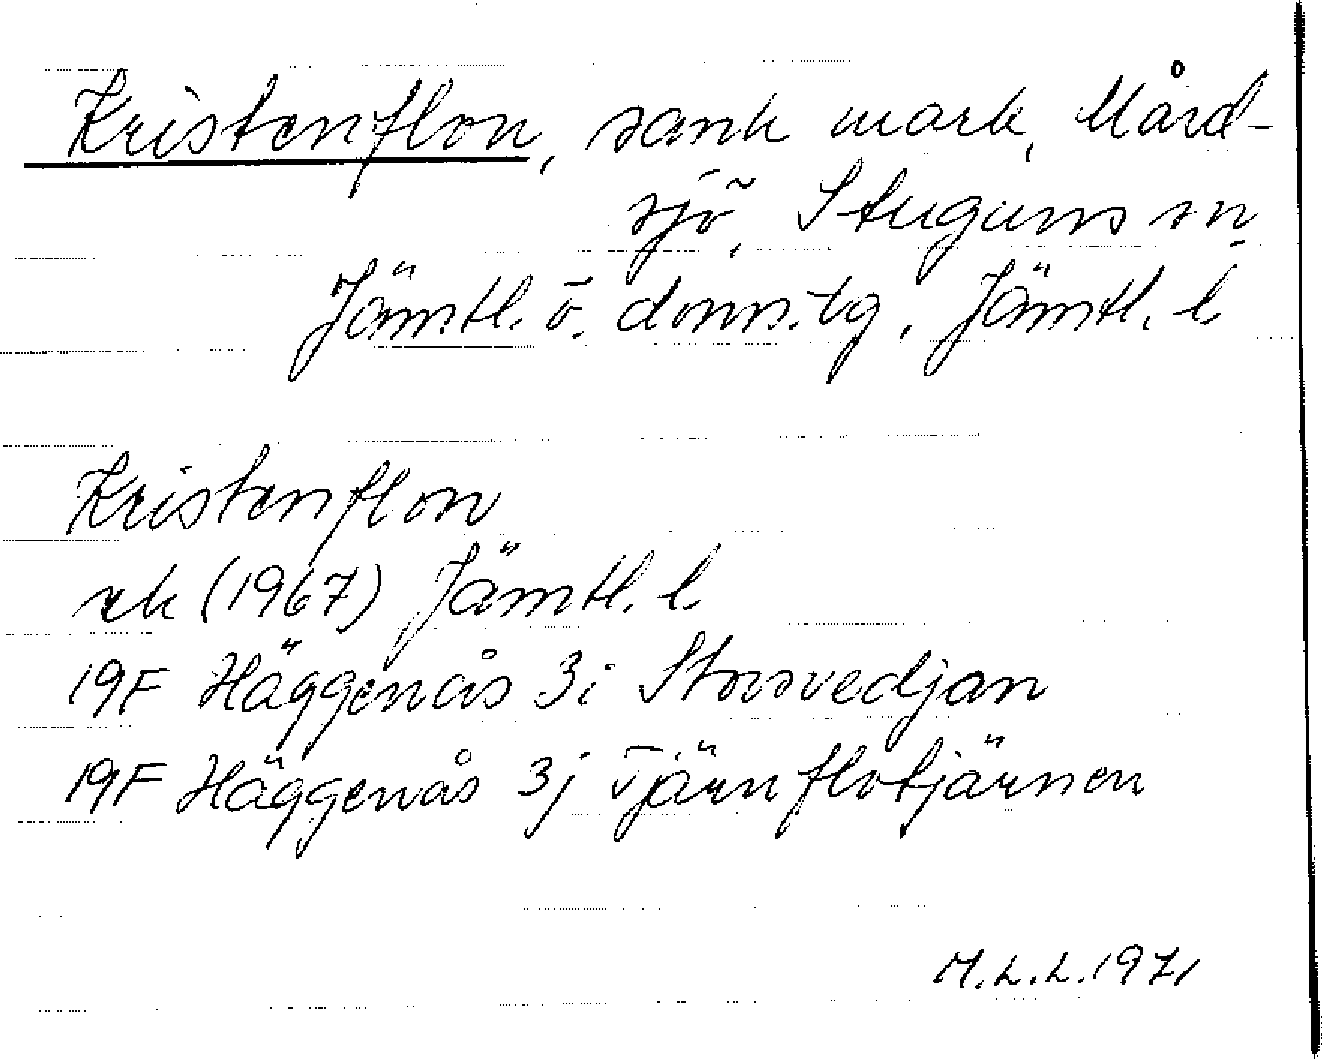 Kristenflon, sank mark, Mård-
sjö, Stuguns sn
Jämtl. ö. doms.tg, Jämtl. l
Kristenflon
rk (1967) Jämtl. l.
19F Häggenås 3i Storsvedjan
19F Häggenås 3j Tjärnflotjärnen
M.L.L. 1971